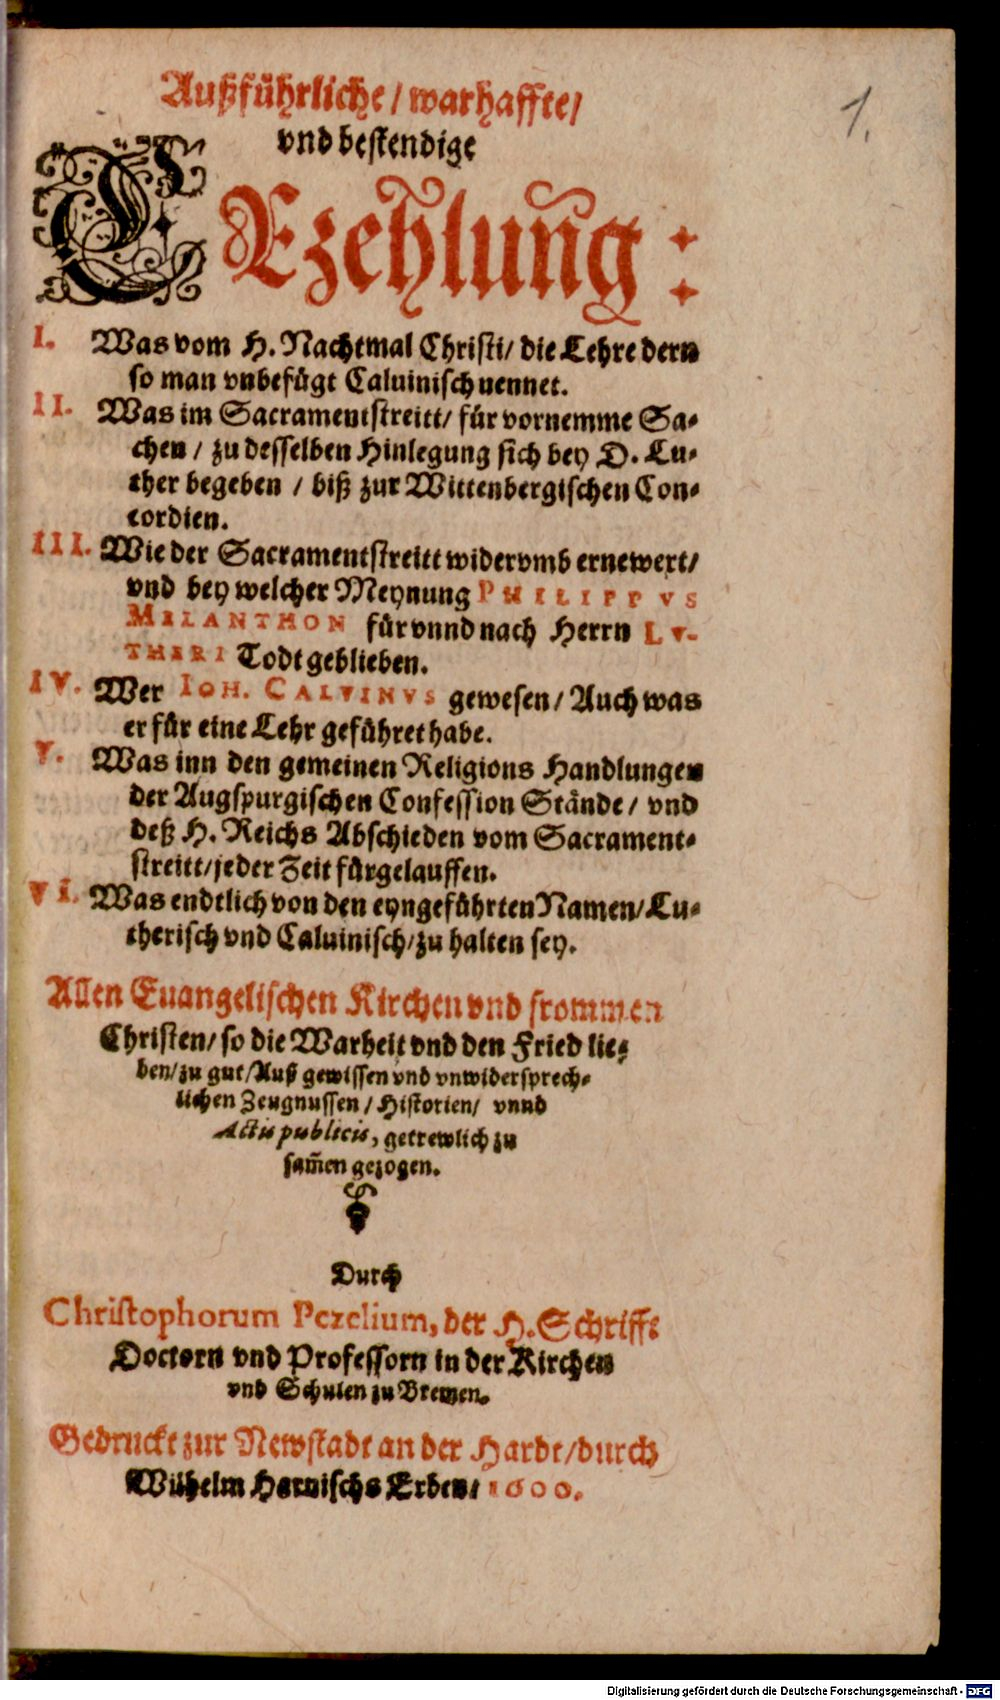 Außführliche / warhaffte /
vnd bestendige
ERzehlung:
1.
I. Was vom H. Nachtmal Christi / die Lehre dern
so man vnbefügt Caluinisch nennet.
II. Was im Sacramentstreitt / für vornemme Sa-
chen / zu desselben Hinlegung sich bey D. Lu-
ther begeben / biß zur Wittenbergischen Con-
cordien.
III. Wie der Sacramentstreitt widervmb ernewert /
vnd bey welcher Meynung PHILIPPVS
MELANTHON für vnnd nach Herrn LV-
THERI Todt geblieben.
IV. Wer IOH. CALVINVS gewesen / Auch was
er für eine Lehr geführet habe.
V. Was inn den gemeinen Religions Handlungen
der Augspurgischen Confession Stände / vnd
deß H. Reichs Abschieden vom Sacrament-
streitt / jeder Zeit fürgelauffen.
VI. Was endtlich von den eyngeführten Namen / Lu-
therisch vnd Caluinisch / zu halten sey.
Allen Euangelischen Kirchen vnd frommen
Christen / so die Warheit vnd den Fried lie-
ben / zu gut / Auß gewissen vnd vnwidersprech-
lichen Zeugnussen / Historien / vnnd
Actis publicis, getrewlich zu
sam̃en gezogen.
Durch
Christophorum Pezelium, der H. Schrifft
Doctorn vnd Professorn in der Kirchen
vnd Schulen zu Bremen.
Gedruckt zur Newstadt an der Hardt / durch
Wilhelm Harnischs Erben / 1600.
Digitalisierung gefördert durch die Deutsche Forschungsgemeinschaft - DFG